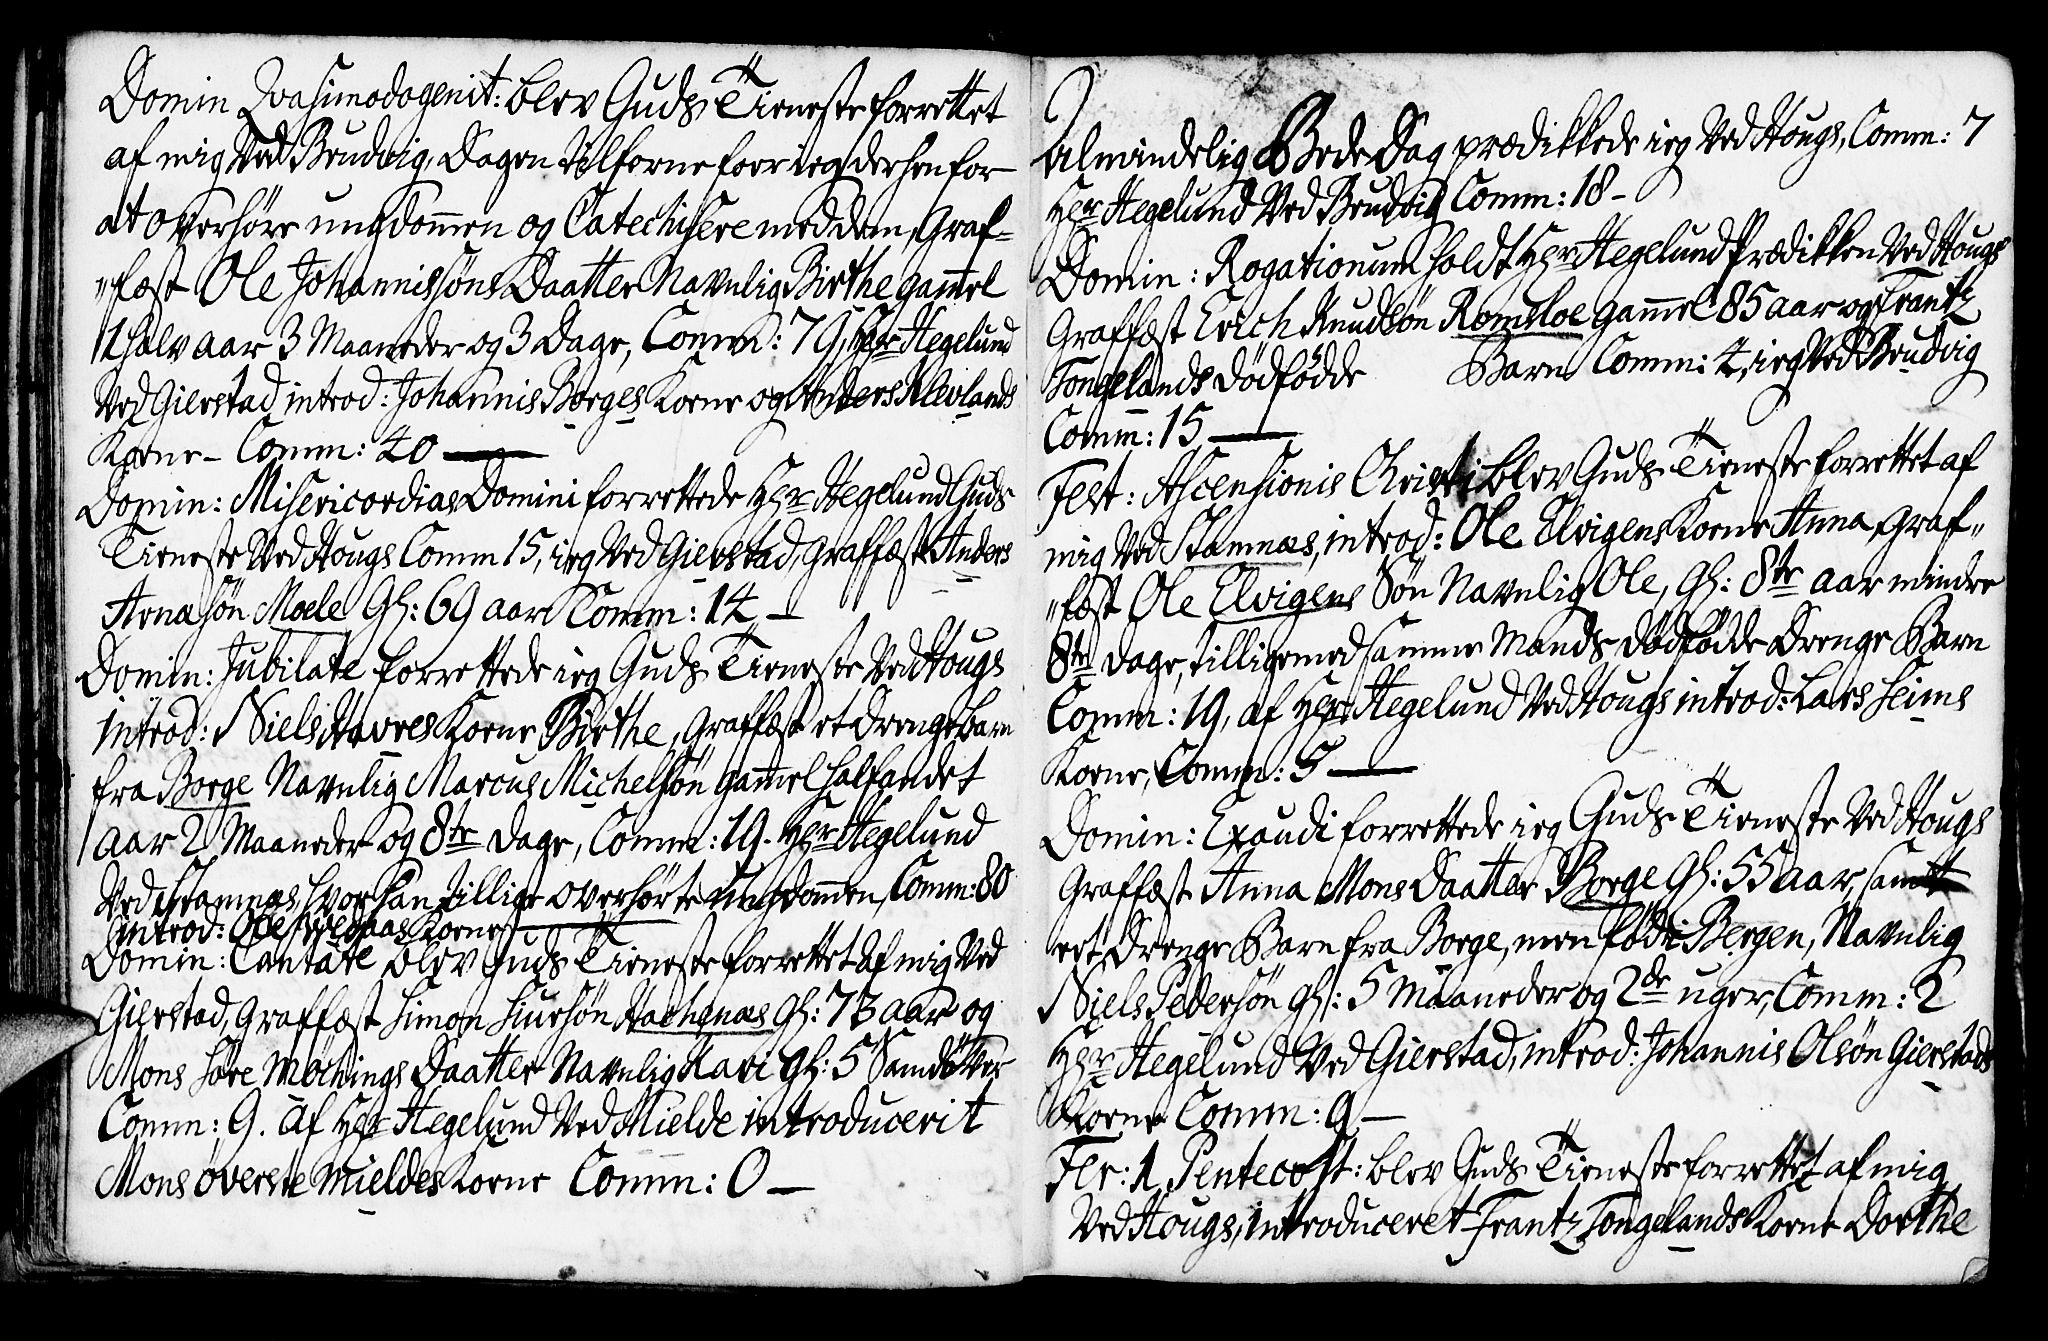 Domin Qvasimodogenit: blev Guds Tieneste forrettet
af mig Ved Brudvig, Dagen tilforne foer ieg derhen for
at overhöre ungdom̄en og Catechisere med dem, Graf-
„fæst Ole Johannissöns Daatter Navnlig Birthe gam̄el
1 halv aar 3 Maaneder og 3 Dage, Comm: 79, Hr Hegelund
Ved Gierstad introd: Johannis Borges Kone og Anders Klevlands
Kone – Comm: 40 —
Domin: Misericordias Domini forrettede Hr Hegelund Guds
Tieneste Ved Hougs Comm 15, ieg Ved Gierstad, Graffæst Anders
Arnasön Moele Gl: 69 aar Comm: 14 –
Domin: Jubilate forrettede ieg Guds Tieneste Ved Hougs
introd: Niels Havres Kone Birthe, Graffæst et drengebarn
fra Borge Navnlig Marcus Michelsön gam̄el halfandet
aar 2 Maaneder og 8te dage, Comm: 19. Hr Hegelund
Ved Stamnæs, hvor han tillige overhörte Ungdom̄en, Comm: 80
introd: Ole Kone
Domin: Cantate blev Guds Tieneste forrettet af mig Ved
Gierstad, Graffæst Simon Siursön Gl: 73 aar og
Mons Söre Möchings Daatter Navnlig Kari Gl: 5
Comm: 9. af Hr Hegelund Ved Mielde introducerit
Mons överste Mieldes Kone Comm: 0 –
Almindelig Bede Dag prædikkede ieg Ved Hougs, Comm: 7
Hr Hegelund Ved Brudvig Comm: 18 –
Domin: Rogationum holdt Hr Hegelund Prædikken Ved Hougs
Graffæst Erich Knudsön Romsloe gam̄el 85 aar og Frantz
Tongelands dödfödde Barn Comm: 4, ieg Ved Brudvig
Comm: 15 —
Fest: Ascensionis Christi blev Guds Tieneste forrettet af
mig Ved Stamnæs, introd: Ole Elvigens Kone Anna, Graf„
„fæst Ole Elvigens Sön Navnlig Ole, Gl: 8te aar mindre
8te dage, tilligemed samme Mands dödfödde Drenge Barn
Comm: 19, af Hr Hegelund Ved Hougs introd: Lars Seims
Kone, Comm: 5 —
Domin: Exaudi forrettede ieg Guds Tieneste Ved Hougs
Graffæst Anna Mons Daatter Borge Gl: 55 aar, samt
eet Drenge Barn fra Borge, men föd i Bergen, Navnlig
Niels Pedersön Gl: 5 Maaneder og 2de uger, Comm: 2
Hr Hegelund Ved Gierstad, introd: Johannis Olsön Gierstads
Kone Comm: 9 –
Fer: 1 Pentecost: blev Guds Tieneste forrettet af mig
Ved Hougs, introduceret Frantz Tongelands Kone Dorthe